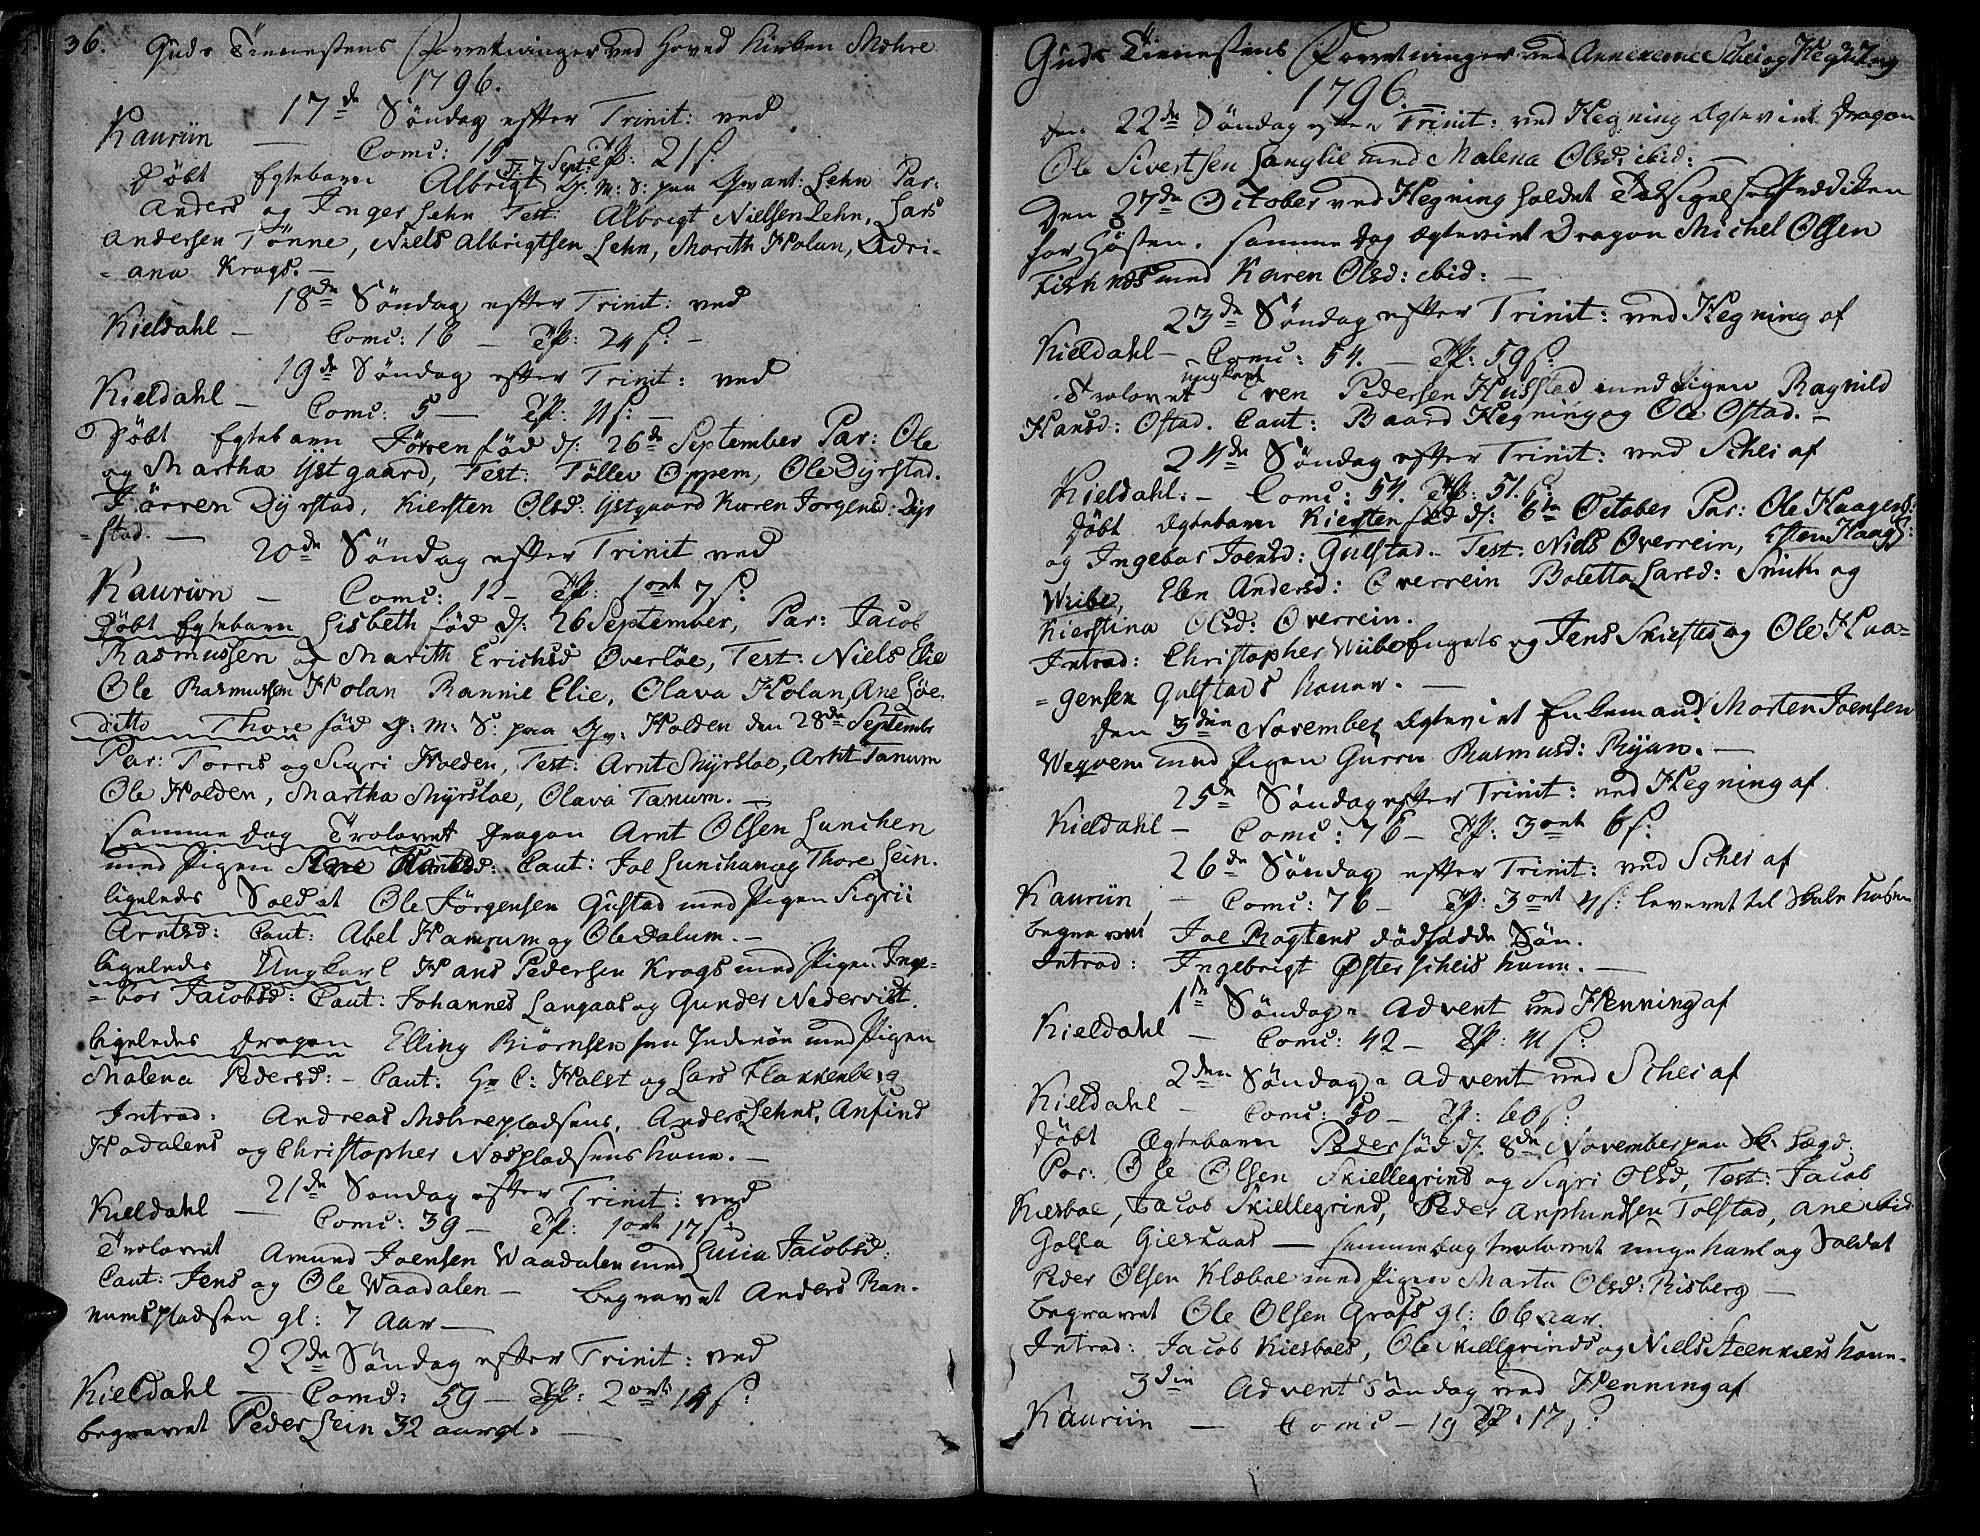 36. Guds Tienestens Forretninger ved Hoved Kirken Mæhre
1796.
17de Søndag efter Trinit: ved
Kauriin — Comu: 15 Tfl: 21 s:
d. 7 Sept:
Døbt Egtebarn Albrigt G: M: S: paa Qvart: Lehn Par:
Anders og Inger Lehn Test: Albrigt Nielsen Lehn, Lars
Andersen Tønne, Niels Albrigtsen Lehn, Marith Holan, Adri-
-ana Krogs. —
18de Søndag efter Trinit: ved
Kieldahl — Comu: 16 — Tfl: 24 s: —
19de Søndag efter Trinit: ved
Kieldahl — Comu: 5 — Tfl: 4 s: —
Døbt Egtebarn Jørren fød d: 26de September Par: Ole
og Martha Ystgaard, Test: Tøllev Oppem, Ole Dyrstad.
Jørren Dyrstad, Kiersten Olsd: Ystgaard Karen Jørgensd: Dyr
-stad. —
20de Søndag efter Trinit ved
Kauriin — Comu: 12 — Tfl: 1 ort 7 s:
Døbt Egtebarn Lisbeth fød d: 26 September, Par: Jacob
Rasmussen og Marith Erichsd Overløe, Test: Niels Elie
Ole Rasmussen Holan Rannie Elie, Olava Holan, Ane Løe.
ditto Thore fød G: M: S: paa Qv: Holden den 28de Septembr
Par: Torris og Sigri Holden, Test: Arnt Myrsloe, Arnt Tanum
Ole Holden, Martha Myrsloe, Olava Tanum. —
samme dag Trolovet Dragon Arnt Olsen Lunchen
med Pigen Ane Hansd: Caut: Joe Lunchan og Thore Lein.
ligeledes Soldat Ole Jørgensen Gustad med Pigen Sigrii
Arntsd: Caut: Abel Hamrum og Ole Dalum. —
ligeledes Ungkarl Hans Pedersen Krogs med Pigen Inge-
-bor Jacobsd: Caut: Johannes Langaas og Gunder Nedervist.
ligeledes Dragon Elling Biørnsen fra Inderøn med Pigen
Malena Pedersd: — Caut: Hr C: Holst og Lars Flakkenberg
Introd: Andreas Mæhrepladsens, Anders Lehns, Anfind
Hodalens og Christopher Næspladsens kone. —
21de Søndag efter Trinit: ved
Kieldahl — Comu: 39 — Tfl: 1 ort 17 s:
Trolovet Amund Joensen Waadalen med Lucia Jacobsd:
Caut: Jens og Ole Waadalen — begravet Anders Ran-
numspladsen gl: 7 Aar —
22de Søndag efter Trinit: ved
Kieldahl — Comu: 59 — Tfl: 2 ort 14 s:
begravet Peder Lein 32 aar gl. —
Guds Tienestens Forretninger ved Annexerne Schei og Hegning 37.
1796. —
den 22de Søndag efter Trinit: ved Hegning Egteviet Dragon
Ole Sivertsen Langlie med Malena Olsd: ibid: —
Den 27de October ved Hegning holdet Taksigelses Prædiken
for Høsten. samme dag Egteviet Dragon Michel Olsen
Fisknæs med Karen Olsd: ibid: —
23de Søndag efter Trinit: ved Hegning af
Kieldahl — Comu: 54. — Tfl: 59 s:
Trolovet ungkarl Even Pedersen Husstad med Pigen Ragnild
Hansd: Østad. Caut: Baard Hegning og Ole Østad. —
24de Søndag efter Trinit: ved Schei af
Kieldahl: — Comu: 54. Tfl: 51. s:
Døbt Egtebarn Kiersten fød d: 6te October Par: Ole Haagens:
og Ingebor Joensd: Gulstad. Test: Niels Overrein, Esten Haags:
Wiibe, Elen Andersd: Overrein Boletta Larsd: Smith og
Kierstina Olsd: Overrein.
Introd: Christopher Wiibe og Jens Skieftes og Ole Haa-
-gensen Gulstads koner. —
den 3die November Egteviet Enkemand Morten Joensen
Wegvem med Pigen Gurru Rasmusd: Ryan. —
25de Søndag efter Trinit: ved Hegning af
Kieldahl — Comu: 76 — Tfl: 3 ort 6 s:
26de Søndag efter Trinit: ved Schei af
Kauriin — Comu: 76 — Tfl: 3 ort 4 s: leveret til Skole Kassen
begravet Joe Rogtens dødfødde Søn.
Introd: Ingebrigt Østerscheis kone. —
1de Søndag i Advent ved Henning af
Kieldahl — Comu: 42 — Tfl: 4 s:
2den Søndag i Advent ved Schei af
Kieldahl — Comu: 50 — Tfl: 60 s:
Døbt Egtebarn Peder fød d: 8de November paa Sk. Lægd:
Par: Ole Olsen Skiellegrind og Sigri Olsd, Test: Jacob
Kiesboe, Jacob Skiellegrind, Peder Anplundsen Tolstad, Ane ibid
Golla Gieskaas — samme dag trolovet unge karl og Soldat
Peder Olsen Klæboe med Pigen Marta Olsd: Risberg —
begravet Ole Olsen Grafs gl: 66 aar.
Introd: Jacob Kiesboes, Ole Skiellgrinds og Niels Steenkiers kone.
3die Advent Søndag ved Henning af
Kauriin — Comu — 19 Tfl: 17 s: